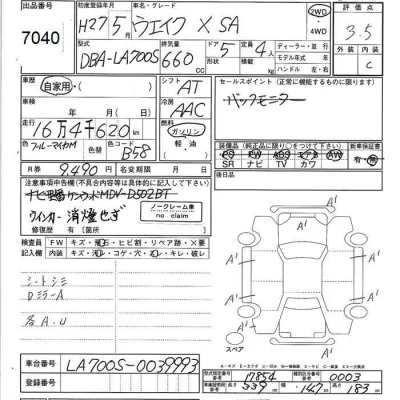 出品番号 7040
初度登録年月 H27年5月 車名・グレード ウエイク X SA 2WD 4WD 評価点 3.5
型式 DBA-LA700S 排気量 660 cc ドア 5 定員 4人 ディーラー・並行 モデル 年式 ハンドル 左・右 外装 内装 C
車歴 自家用・ シフト AT セールスポイント(正常に機能するものに限ります)
車検 年 月 日 冷房 AAC バックモニター
走行 16万4千620km 燃料 ガソリン 軽・油
色 ブルーマイカM 色替 色No. B58 装備品(純正品に限り○をつけて下さい) 新車保証書
PS PW ABS エアB 有・無
SR AW TV カワ
R券 9,490円 名変期限 月 日 後日品
注意事項申告欄(不具合内容等は具体的に記入して下さい)
ナビ型番 ケンウッド MDV-D502BT
ウインカー消燈せず ノークレーム車 no claim
修復歴 有・無 【箇所】
検査員 FW キズ・飛石・ヒビ割・リペア跡・×要
記入欄 内装 キズ・汚レ・コゲ・穴・ズレ・キレ・破レ
シートシミ
DミラーA
各A.U
A'
A'
A'
A'
A'
A'
スペア
車台番号 LA700S-0039993
登録番号
型式指定番号 17854 類別区分番号 0003
長さ 339 cm 幅 147 cm 高さ 183 cm